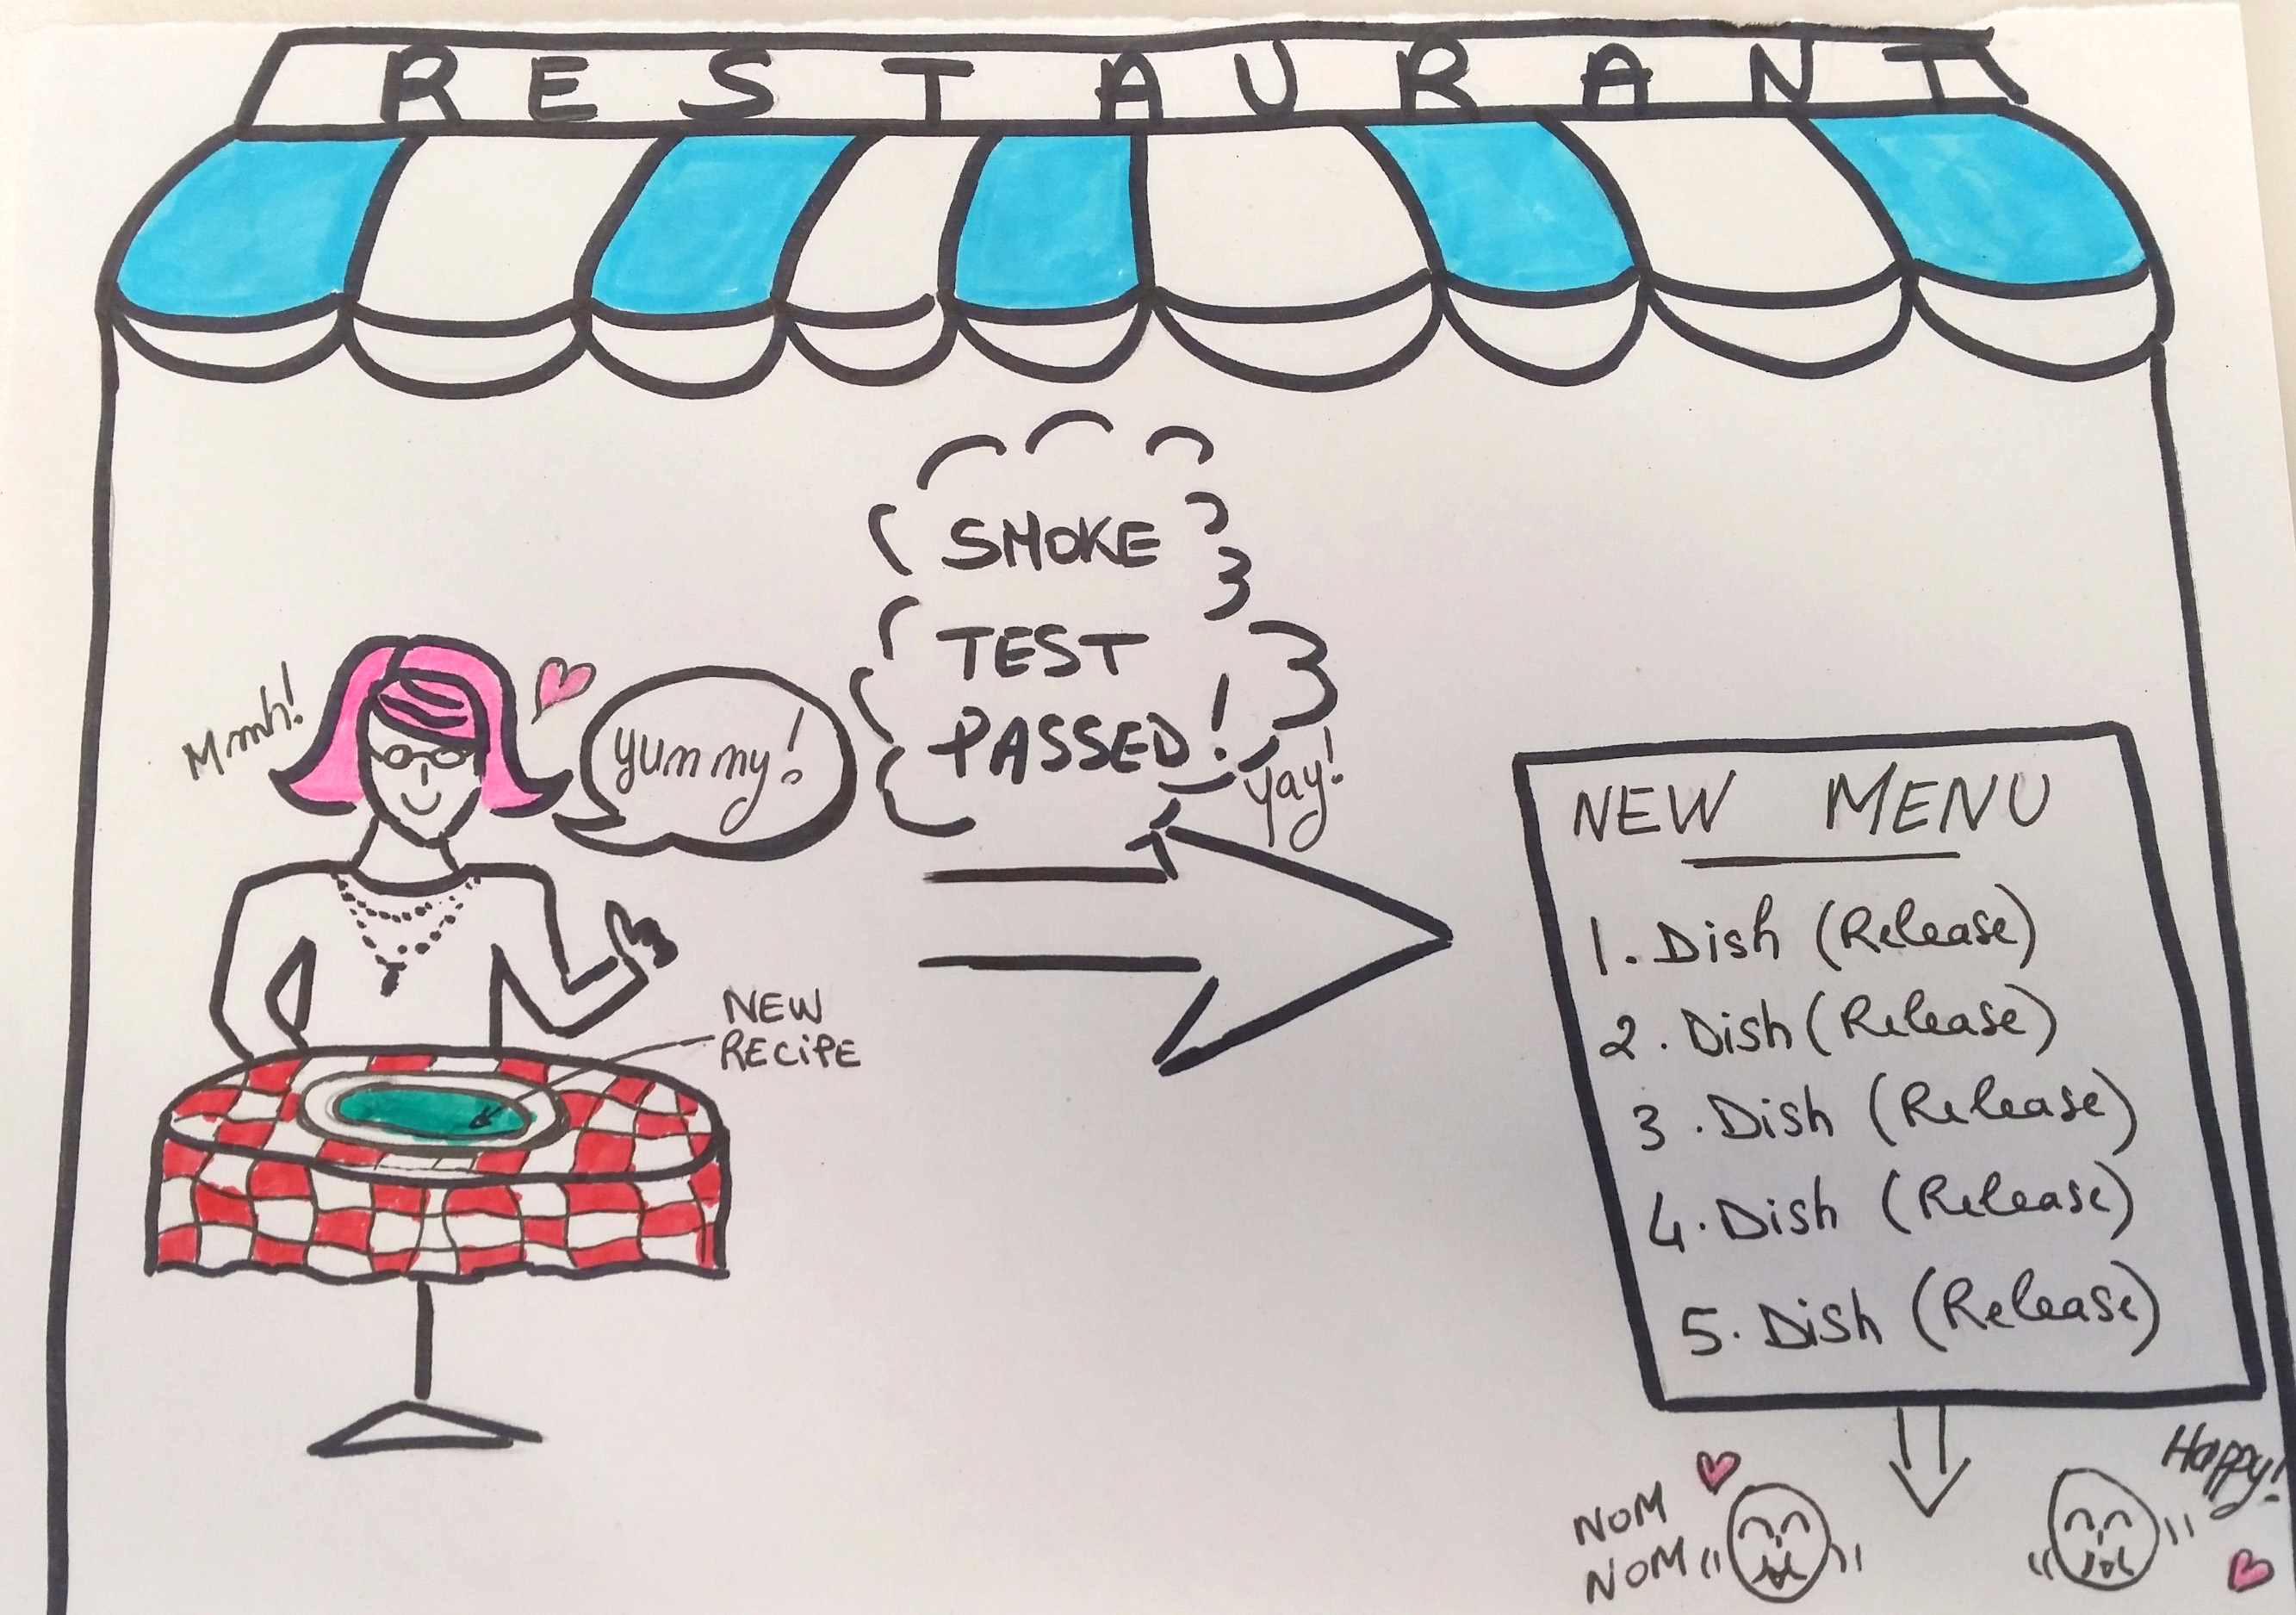 RESTAURANT
SMOKE
TEST
PASSED!
Yay!
Mmh!
yummy!
NEW
RECIPE
NEW MENU
1. Dish (Release)
2. Dish (Release)
3. Dish (Release)
4. Dish (Release)
5. Dish (Release)
NOM
NOM
Happy!